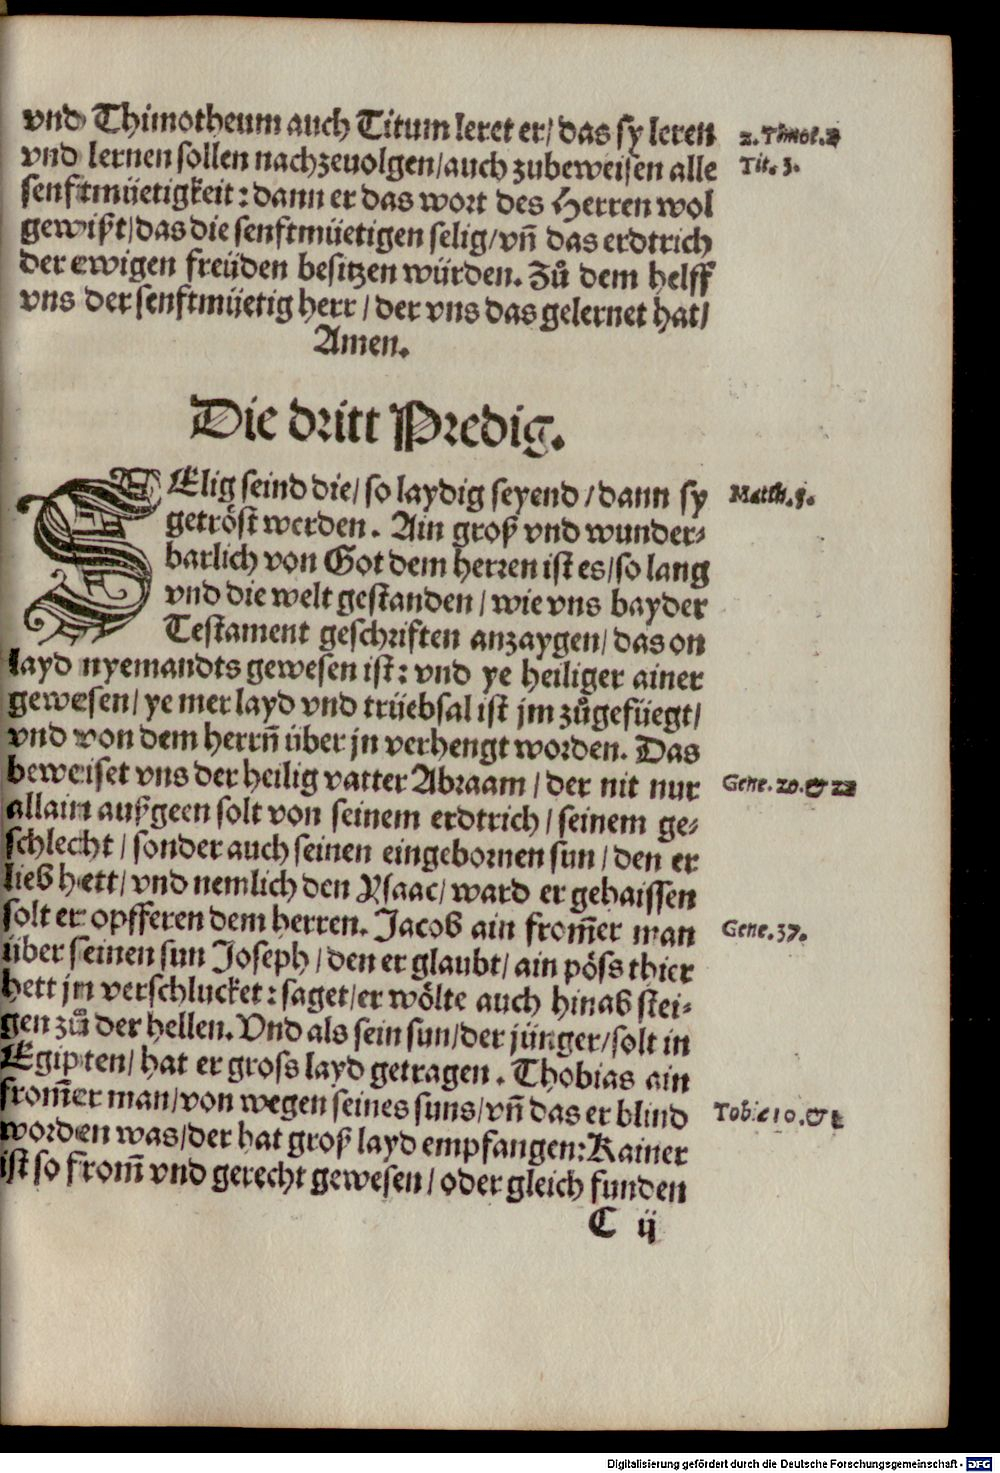 vnd Thimotheum auch Titum leret er/ das sy leren
2. Timot. 2
vnd lernen sollen nachzeuolgen/ auch zubeweisen alle
Tit. 3.
senftmüetigkeit: dann er das wort des Herren wol
gewißt/ das die senftmüetigen selig/ vn̄ das erdtrich
der ewigen freüden besitzen würden. Zů dem helff
vns der senftmüetig herr/ der vns das gelernet hat/
Amen.
Die dritt Predig.
SElig seind die/ so laydig seyend/ dann sy
Matth. 5.
getröst werden. Ain groß vnd wunder-
barlich von Got dem herren ist es/ so lang
vnd die welt gestanden/ wie vns bayder
Testament geschriften anzaygen/ das on
layd nyemandts gewesen ist: vnd ye heiliger ainer
gewesen/ ye mer layd vnd trüebsal ist jm zůgefüegt/
vnd von dem herrn̄ über jn verhengt worden. Das
beweiset vns der heilig vatter Abraam/ der nit nur
Gene. 20. & 22
allain außgeen solt von seinem erdtrich/ seinem ge-
schlecht/ sonder auch seinen eingebornen sun/ den er
lieb hett/ vnd nemlich den Ysaac/ ward er gehaissen
solt er opfferen dem herren. Jacob ain from̄er man
Gene. 37.
über seinen sun Joseph/ den er glaubt/ ain pöss thier
hett jn verschlucket: saget/ er wölte auch hinab stei-
gen zů der hellen. Vnd als sein sun/ der jünger/ solt in
Egipten/ hat er gross layd getragen. Thobias ain
from̄er man/ von wegen seines suns/ vn̄ das er blind
Tobie 10. &
worden was/ der hat groß layd empfangen: Kainer
ist so from̄ vnd gerecht gewesen/ oder gleich funden
C ij
Digitalisierung gefördert durch die Deutsche Forschungsgemeinschaft - DFG